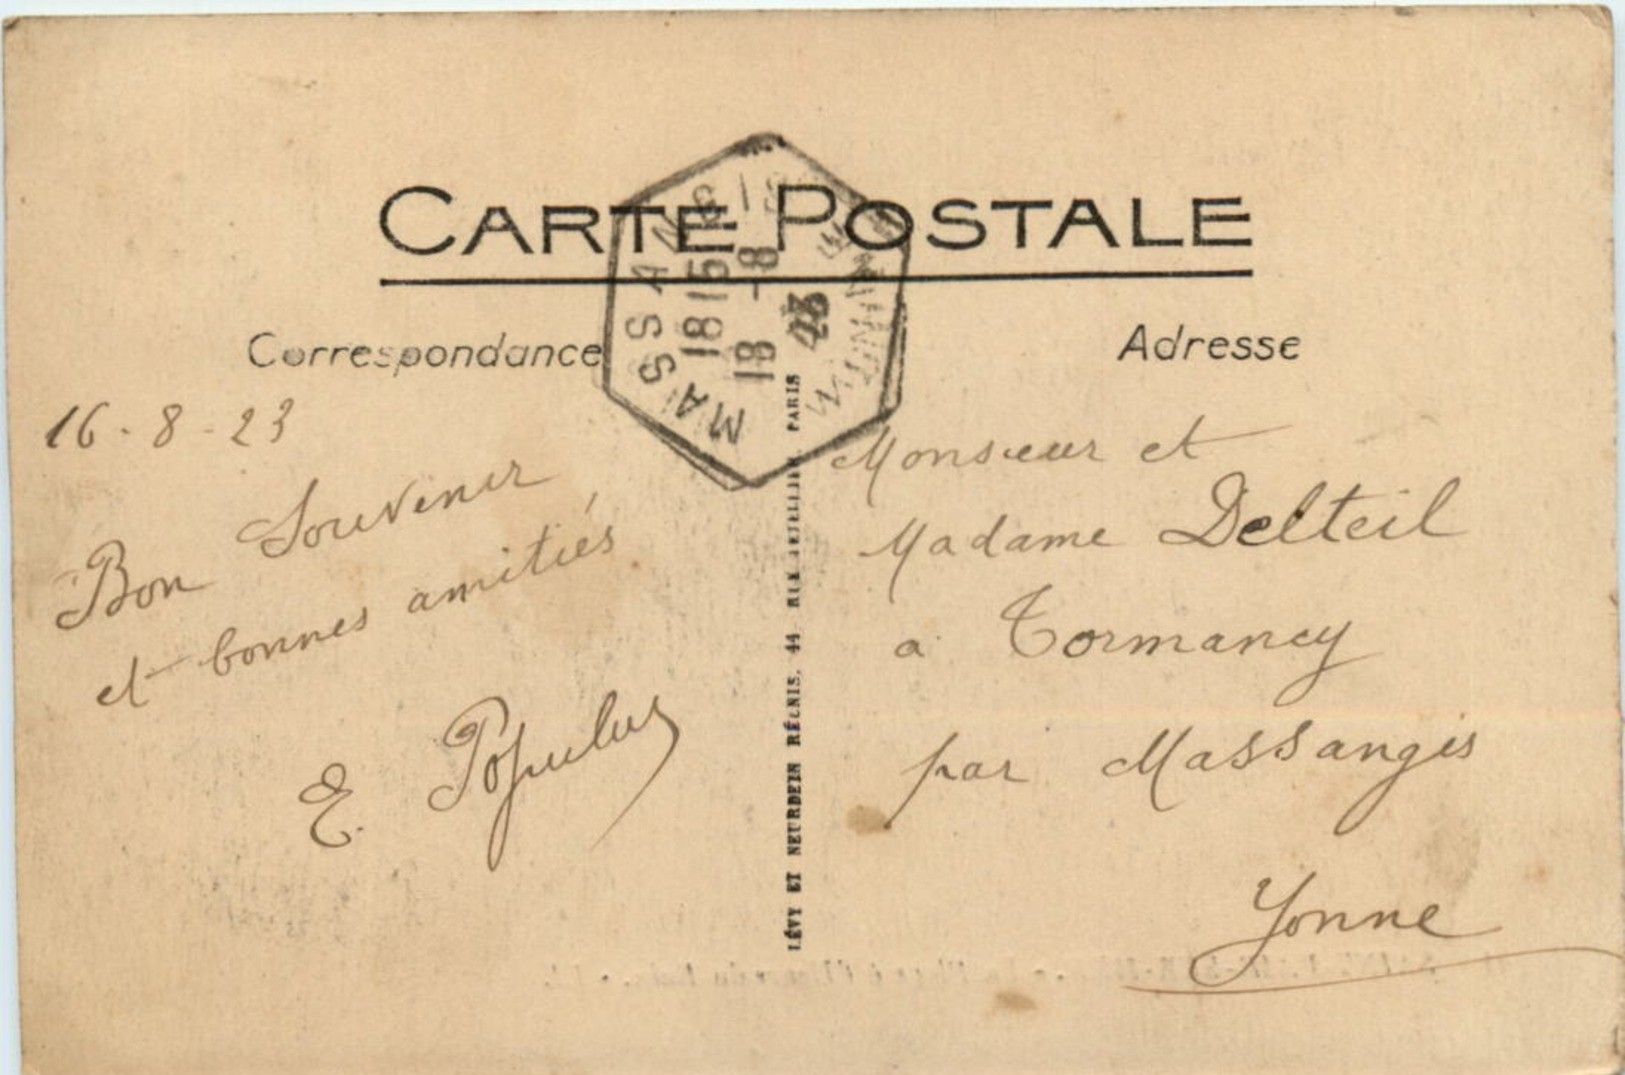 CARTE POSTALE
Correspondance
Adresse
MASSANGIS
18 15
18 -8
23
16 - 8 - 23
Bon Souvenir
et bonnes amitiés
E. Populus
LÉVY ET NEURDEIN RÉUNIS, 44, RUE LETELLIER, PARIS
Monsieur et
Madame Delteil
a Tormancy
par Massangis
Yonne